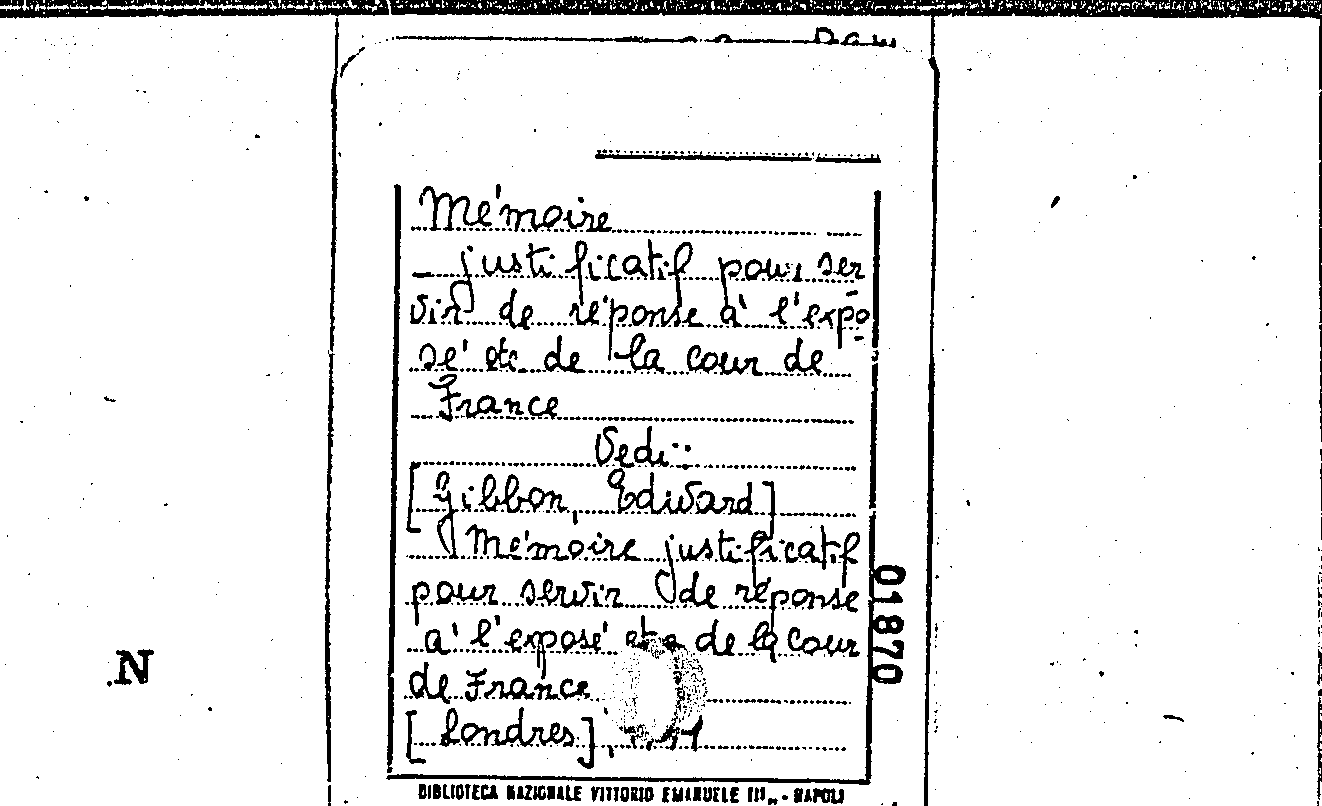 Mémoire
_ justificatif pour ser
vir de réponse à l'expo
sé etc. de la cour de
France
Vedi:
[Gibbon, Edward]
Mémoire justificatif
pour servir de réponse
à l'exposé etc de la cour
de France
[Londres],
01870
N
BIBLIOTECA NAZIONALE VITTORIO EMANUELE III - NAPOLI